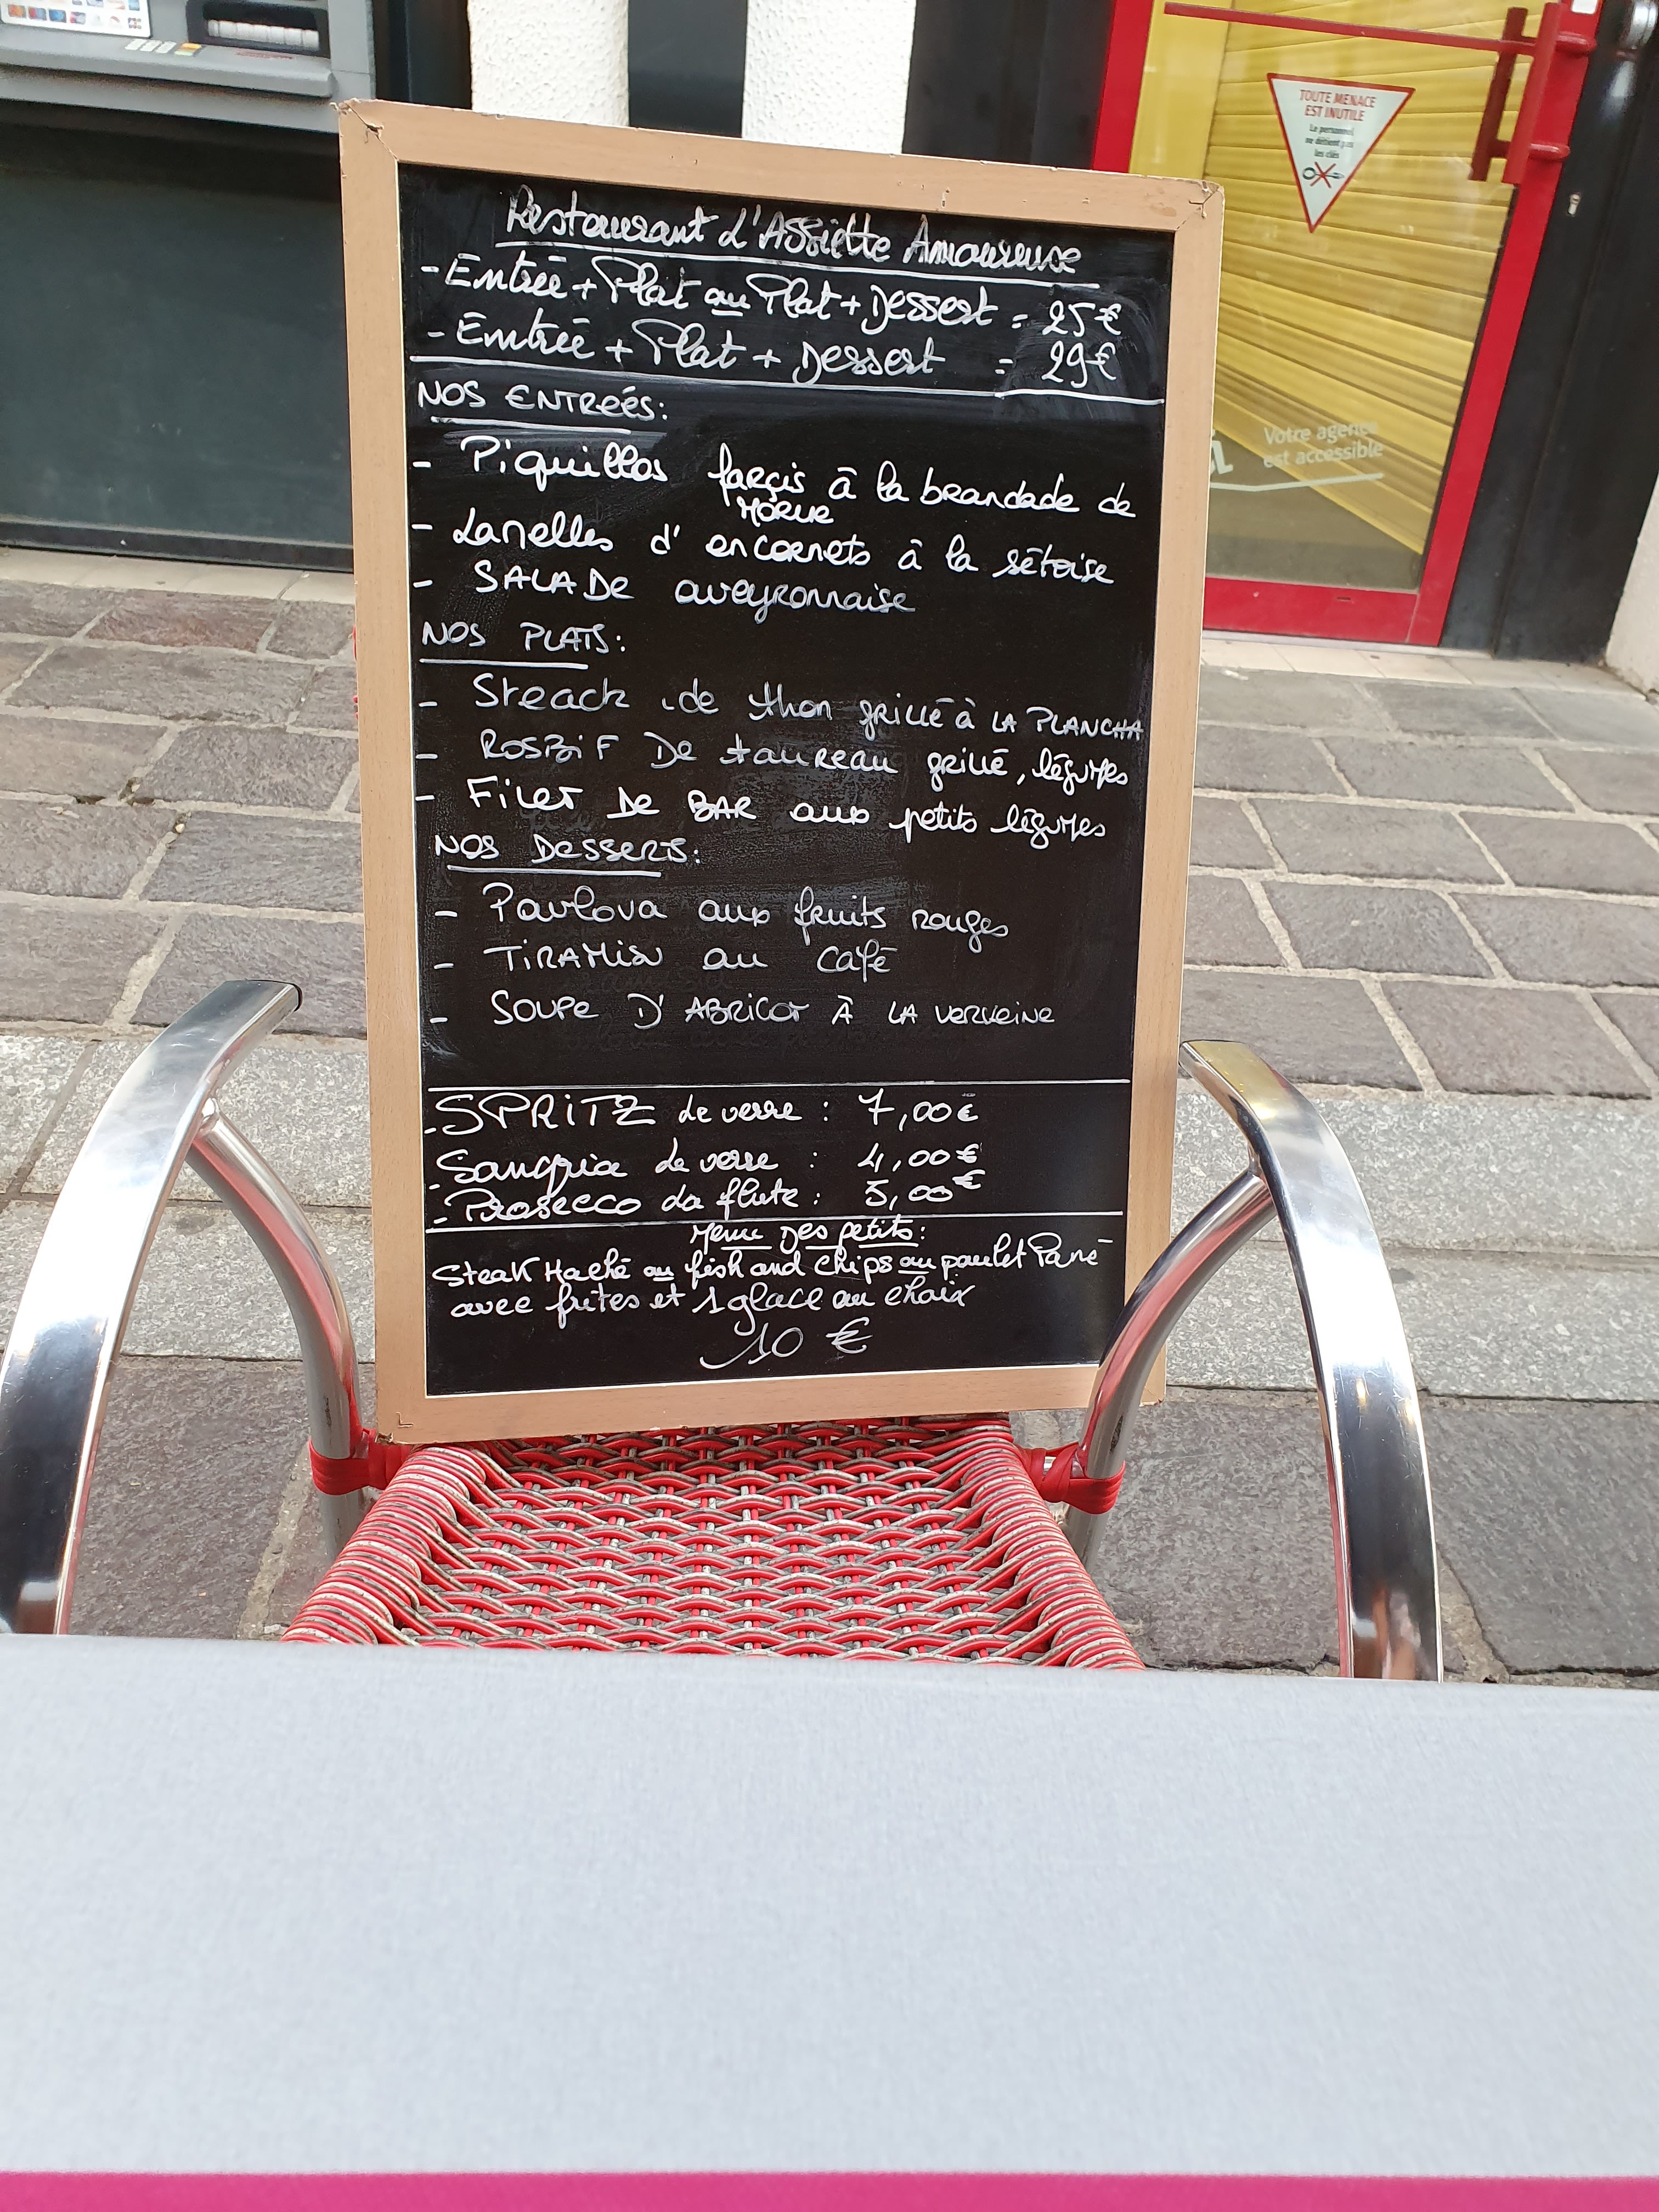 Restaurant L'Assiette Amoureuse
- Entrée + Plat ou Plat + Dessert = 25€
- Entrée + Plat + Dessert = 29€
NOS ENTRÉES:
- Piquillos farçis à la brandade de
MORUE
- Lamelles d'encornets à la sétoise
- SALADE aveyronnaise
NOS PLATS:
- Steack de thon grillé à LA PLANCHA
- ROSBIF De taureau grillé, légumes
- FILET De BAR aux petits légumes
NOS DESSERTS:
- Pavlova aux fruits rouges
- TIRAMISU au café
- SOUPE D'ABRICOT À LA VERVEINE
- SPRITZ le verre : 7,00€
- Sangria le verre : 4,00€
- Prosecco la flute : 5,00€
Menu Des petits:
Steak Haché ou fish and chips ou poulet Pané
avec frites et 1 glace au choix
10 €
TOUTE MENACE
EST INUTILE
Le personnel
ne détient pas
les clés
Votre agence
est accessible